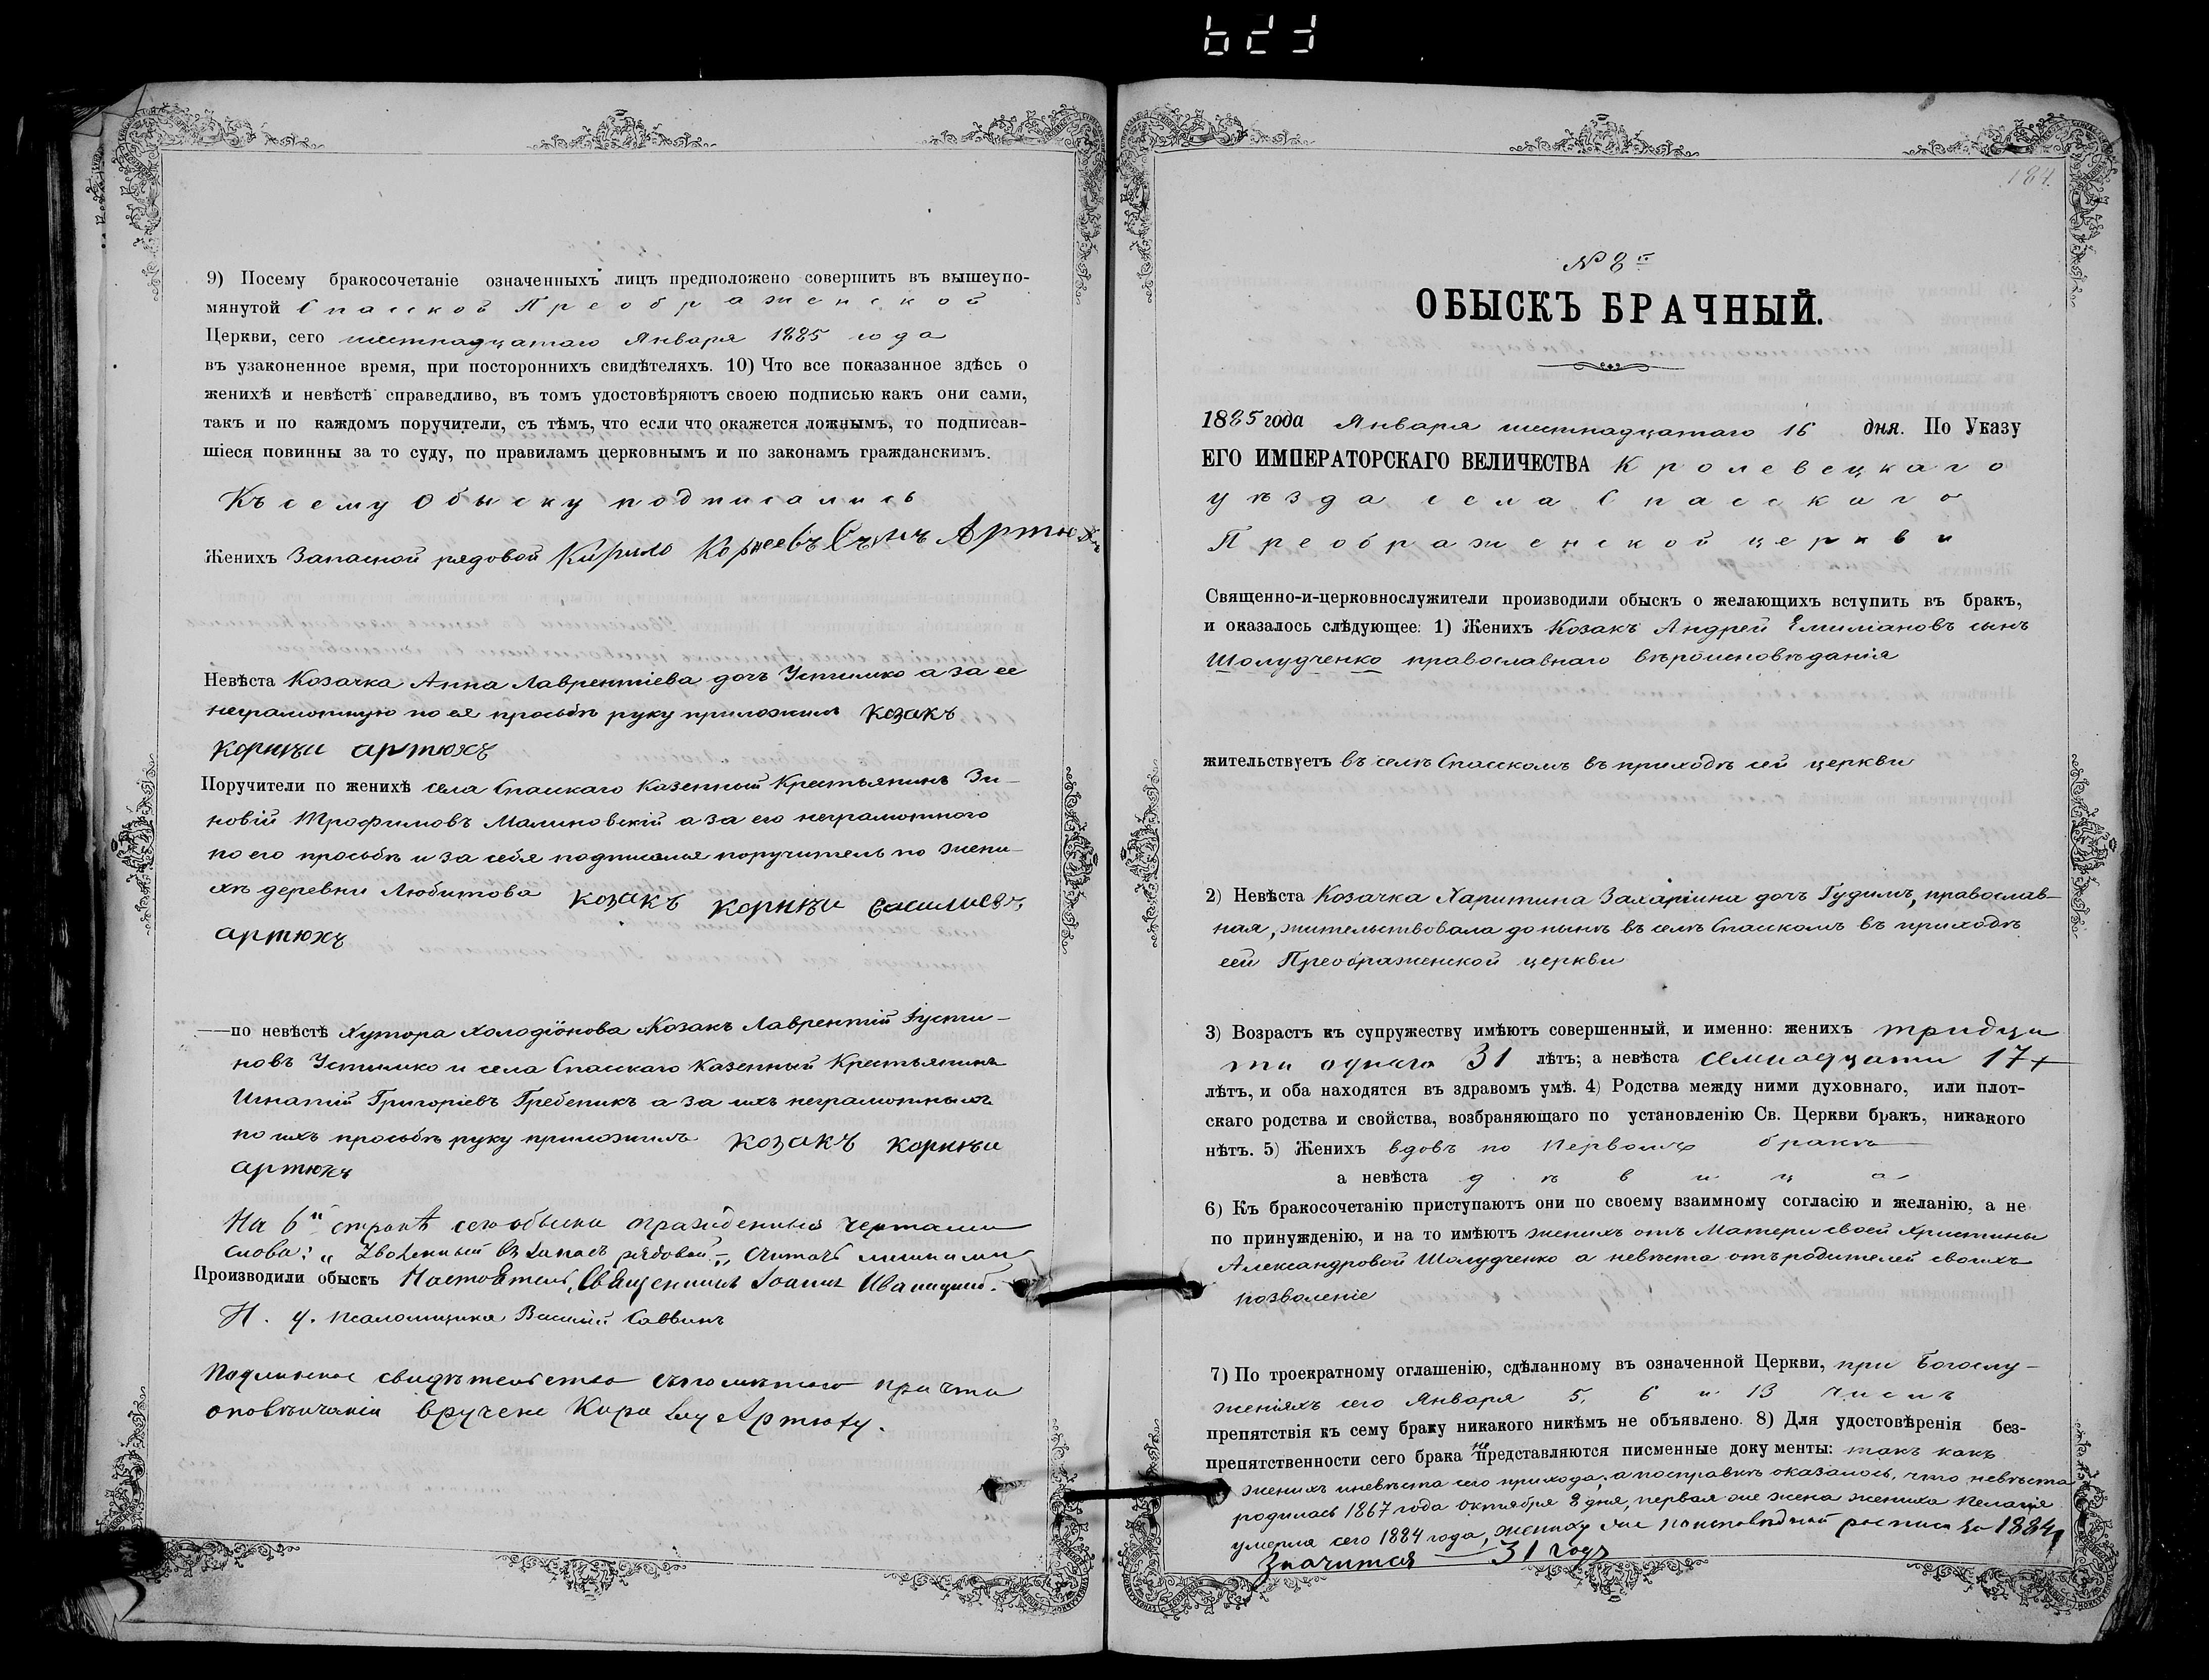 9) Посему бракосочетаніе означенныхъ лицъ предположено совершить въ вышеупо-
мянутой Спасской Преображенской
Церкви, сего шестнадцатаго Января 1885 года
въ узаконенное время, при постороннихъ свидѣтеляхъ. 10) Что все показанное здѣсь о
женихѣ и невѣстѣ справедливо, въ томъ удостовѣряютъ своею подписью какъ они сами,
такъ и по каждомъ поручители, съ тѣмъ, что если что окажется ложнымъ, то подписав-
шіеся повинны за то суду, по правиламъ церковнымъ и по законамъ гражданскимъ.
Къ сему Обыску подписались
Женихъ Запасной рядовой Кирило Корнеевъ Сынъ Артюхъ
Невѣста Козачка Анна Лаврентіева дочъ Устимко а за ее
неграмотную по ея просьбѣ руку приложилъ козакъ
корнѣи артюхъ
Поручители по женихѣ села Спасскаго Казенный Крестьянинъ Зи-
новій Трофимовъ Малиновскій а за его неграмотного
по его просьбѣ и за себя подписался поручитель по жени-
хѣ деревни Любитова козакъ корнѣи василиевъ
артюхъ
— по невѣстѣ Хутора Холодіонова Козакъ Лаврентій Іусти-
новъ Устимко и села Спасскаго Казенный Крестьянинъ
Игнатій Григоріевъ Гребеникъ а за ихъ неграмотныхъ
по ихъ просьбѣ руку приложилъ козакъ корнѣи
артюхъ
На 6й строкѣ сего обыска огражденныя чертами
слова: „Уволенный въ запасъ рядовой", считать лишними
Производили обыскъ Настоятель, Священникъ Іоаннъ Иваницкій.
И. д. псаломщика Василій Саввинъ
Подлинное свидѣтельство съ помѣткою причта
о повѣнчаніи вручено Кирилу Артюху.
184.
№ 8й
ОБЫСКЪ БРАЧНЫЙ.
1885 года Января шестнадцатаго 16 дня. По Указу
ЕГО ИМПЕРАТОРСКАГО ВЕЛИЧЕСТВА Кролевецкаго
уѣзда села Спасскаго
Преображенской церкви
Священно-и-церковнослужители производили обыскъ о желающихъ вступить въ бракъ,
и оказалось слѣдующее: 1) Женихъ Козакъ Андрей Емиліановъ сынъ
Шолудченко православнаго вѣроисповѣданія
жительствуетъ въ селѣ Спасскомъ въ приходѣ сей церкви
2) Невѣста Козачка Харитина Захаріина дочъ Гудимъ, православ-
ная, жительствовала до нынѣ въ селѣ Спасскомъ въ приходѣ
сей Преображенской церкви
3) Возрастъ къ супружеству имѣютъ совершенный, и именно: женихъ тридца
ти одного 31 лѣтъ; а невѣста семнадцати 17
лѣтъ, и оба находятся въ здравомъ умѣ. 4) Родства между ними духовнаго, или плот-
скаго родства и свойства, возбраняющаго по установленію Св. Церкви бракъ, никакого
нѣтъ. 5) Женихъ вдовъ по первомъ бракѣ
а невѣста дѣвица
6) Къ бракосочетанію приступаютъ они по своему взаимному согласію и желанію, а не
по принужденію, и на то имѣютъ женихъ отъ Матери своей Христины
Александровой Шолудченко а невѣста отъ родителей своихъ
позволеніе
7) По троекратному оглашенію, сдѣланному въ означенной Церкви, при Богослу-
женіяхъ сего Января 5, 6 и 13 числъ
препятствія къ сему браку никакого никѣмъ не объявлено. 8) Для удостовѣренія без-
препятственности сего брака не представляются писменные документы: такъ какъ
женихъ и невѣста сего прихода; а по справкѣ оказалось, что невѣста
родилась 1867 года октября 8 дня, первая же жена жениха Пелагія
умерла сего 1884 года, жениху же по исповѣдной росписи за 1884
значится — 31 годъ